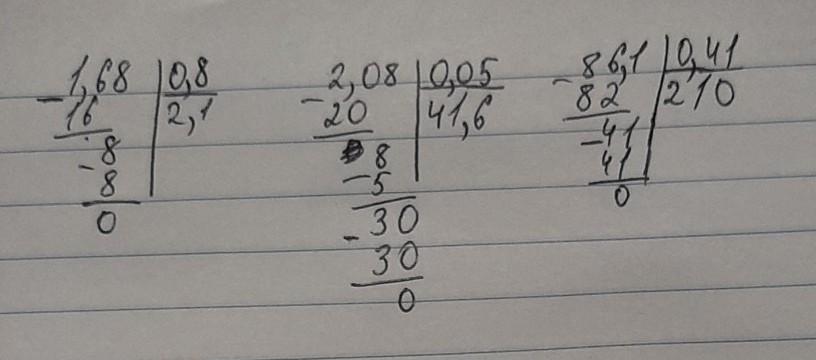 - 1,68 | 0,8
16 | 2,1
- 8
8
0
- 2,08 | 0,05
20 | 41,6
8
- 5
- 30
30
0
- 86,1 | 0,41
82 | 210
- 41
41
0